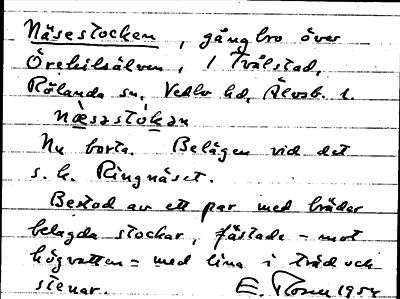 Näsestocken, gångbro över
Örekilsälven, i Tvålstad,
Rölanda sn, Vedbo hd, Älvsb. l.
næsastokan
Nu borta. Belägen vid det
s.k. Ringnäset.
Bestod av ett par med bräder
belagda stockar, fästade - mot
högvatten = med lina i träd och
stenar. E. 1954